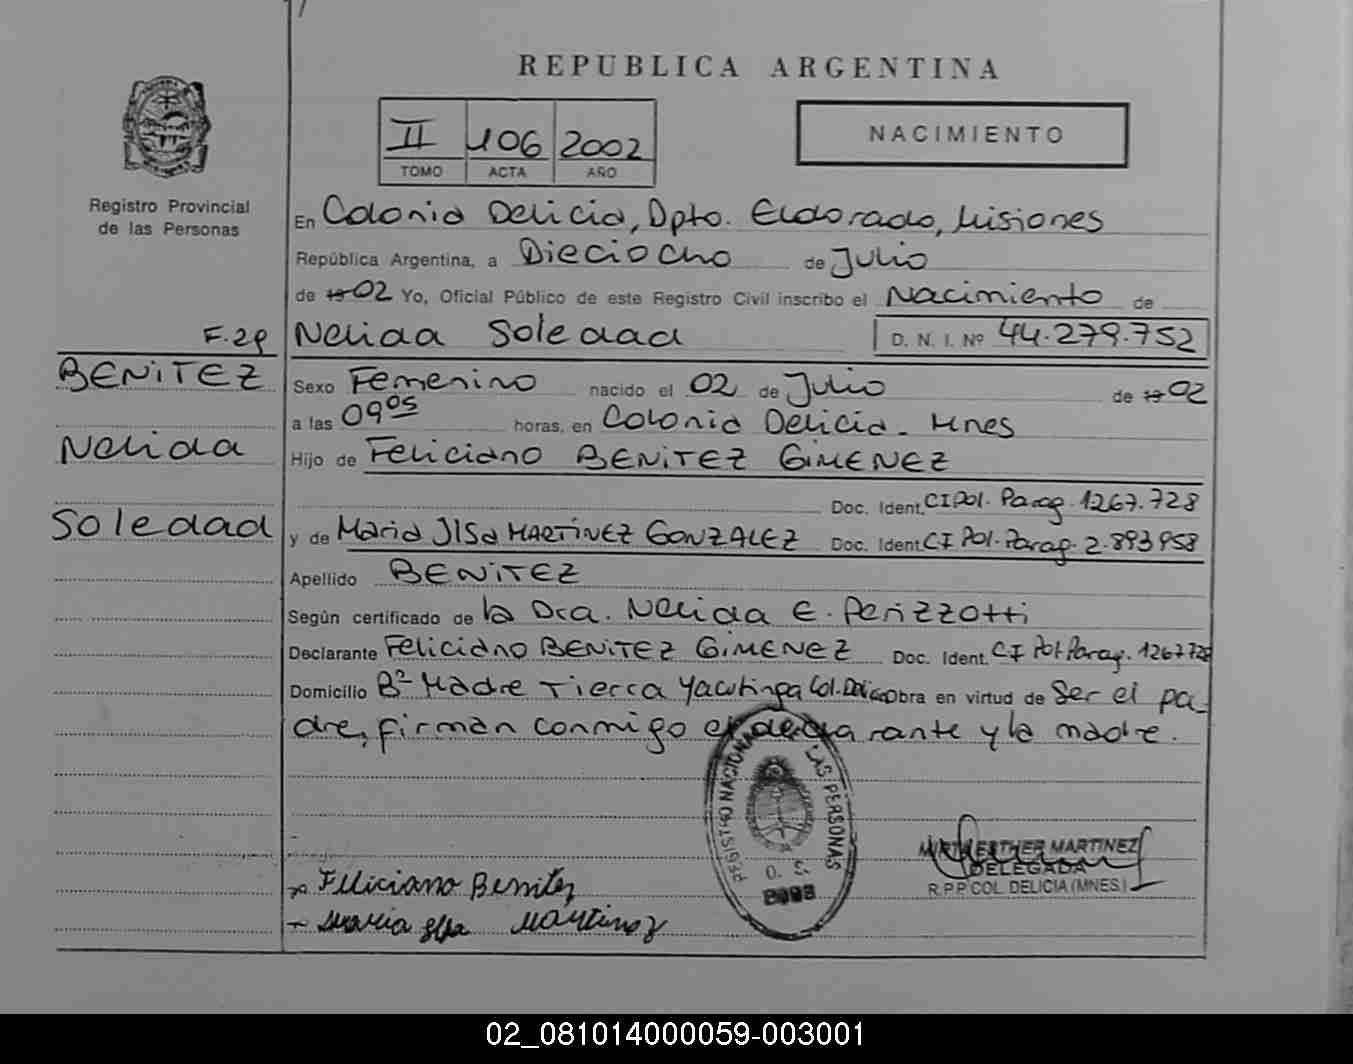 REPUBLICA ARGENTINA
II 106 2002
TOMO ACTA AÑO
NACIMIENTO
Registro Provincial
de las Personas
F. 29
BENITEZ
Nelida
Soledad
En Colonia Delicia, Dpto. Eldorado, Misiones
República Argentina, a Dieciocho de Julio
de 19 02 Yo, Oficial Público de este Registro Civil inscribo el Nacimiento de
Nelida Soledad D. N. I. Nº 44.279.752
Sexo Femenino nacido el 02 de Julio de 19 02
a las 09 05 horas, en Colonia Delicia - Mnes
Hijo de Feliciano BENITEZ GIMENEZ
Doc. Ident. CI Pol. Parag. 1267.728
y de Maria Ilsa MARTINEZ GONZALEZ Doc. Ident. CI Pol. Parag. 2.893958
Apellido BENITEZ
Según certificado de la Dra. Nelida E. Perizzotti
Declarante Feliciano BENITEZ GIMENEZ Doc. Ident. CI Pol. Parag. 1267728
Domicilio Bº Madre Tierra Yacutinga Col. Delicia Obra en virtud de Ser el pa-
dre, firman conmigo el declarante y la madre.
REGISTRO NACIONAL LAS PERSONAS
O. S.
Feliciano Benitez
Maria Ilsa Martinez
MIRTA ESTHER MARTINEZ
DELEGADA
R.P.P. COL. DELICIA (MNES.)
02_081014000059-003001